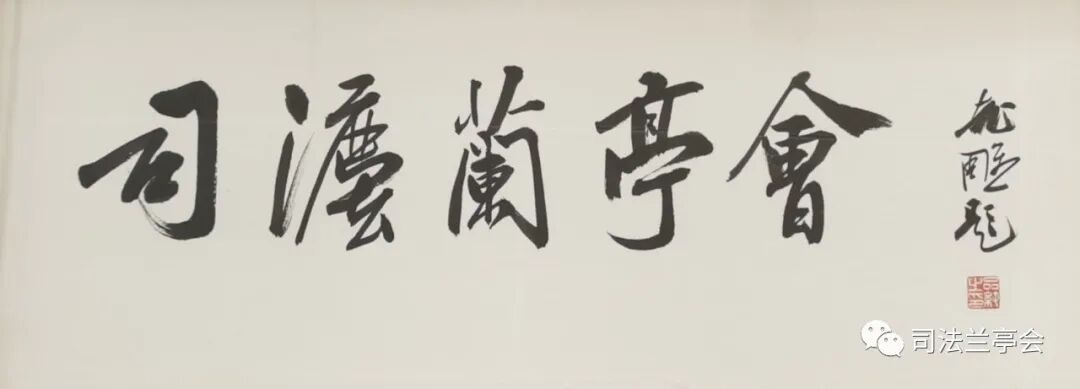 司灋蘭亭會
题
司法兰亭会